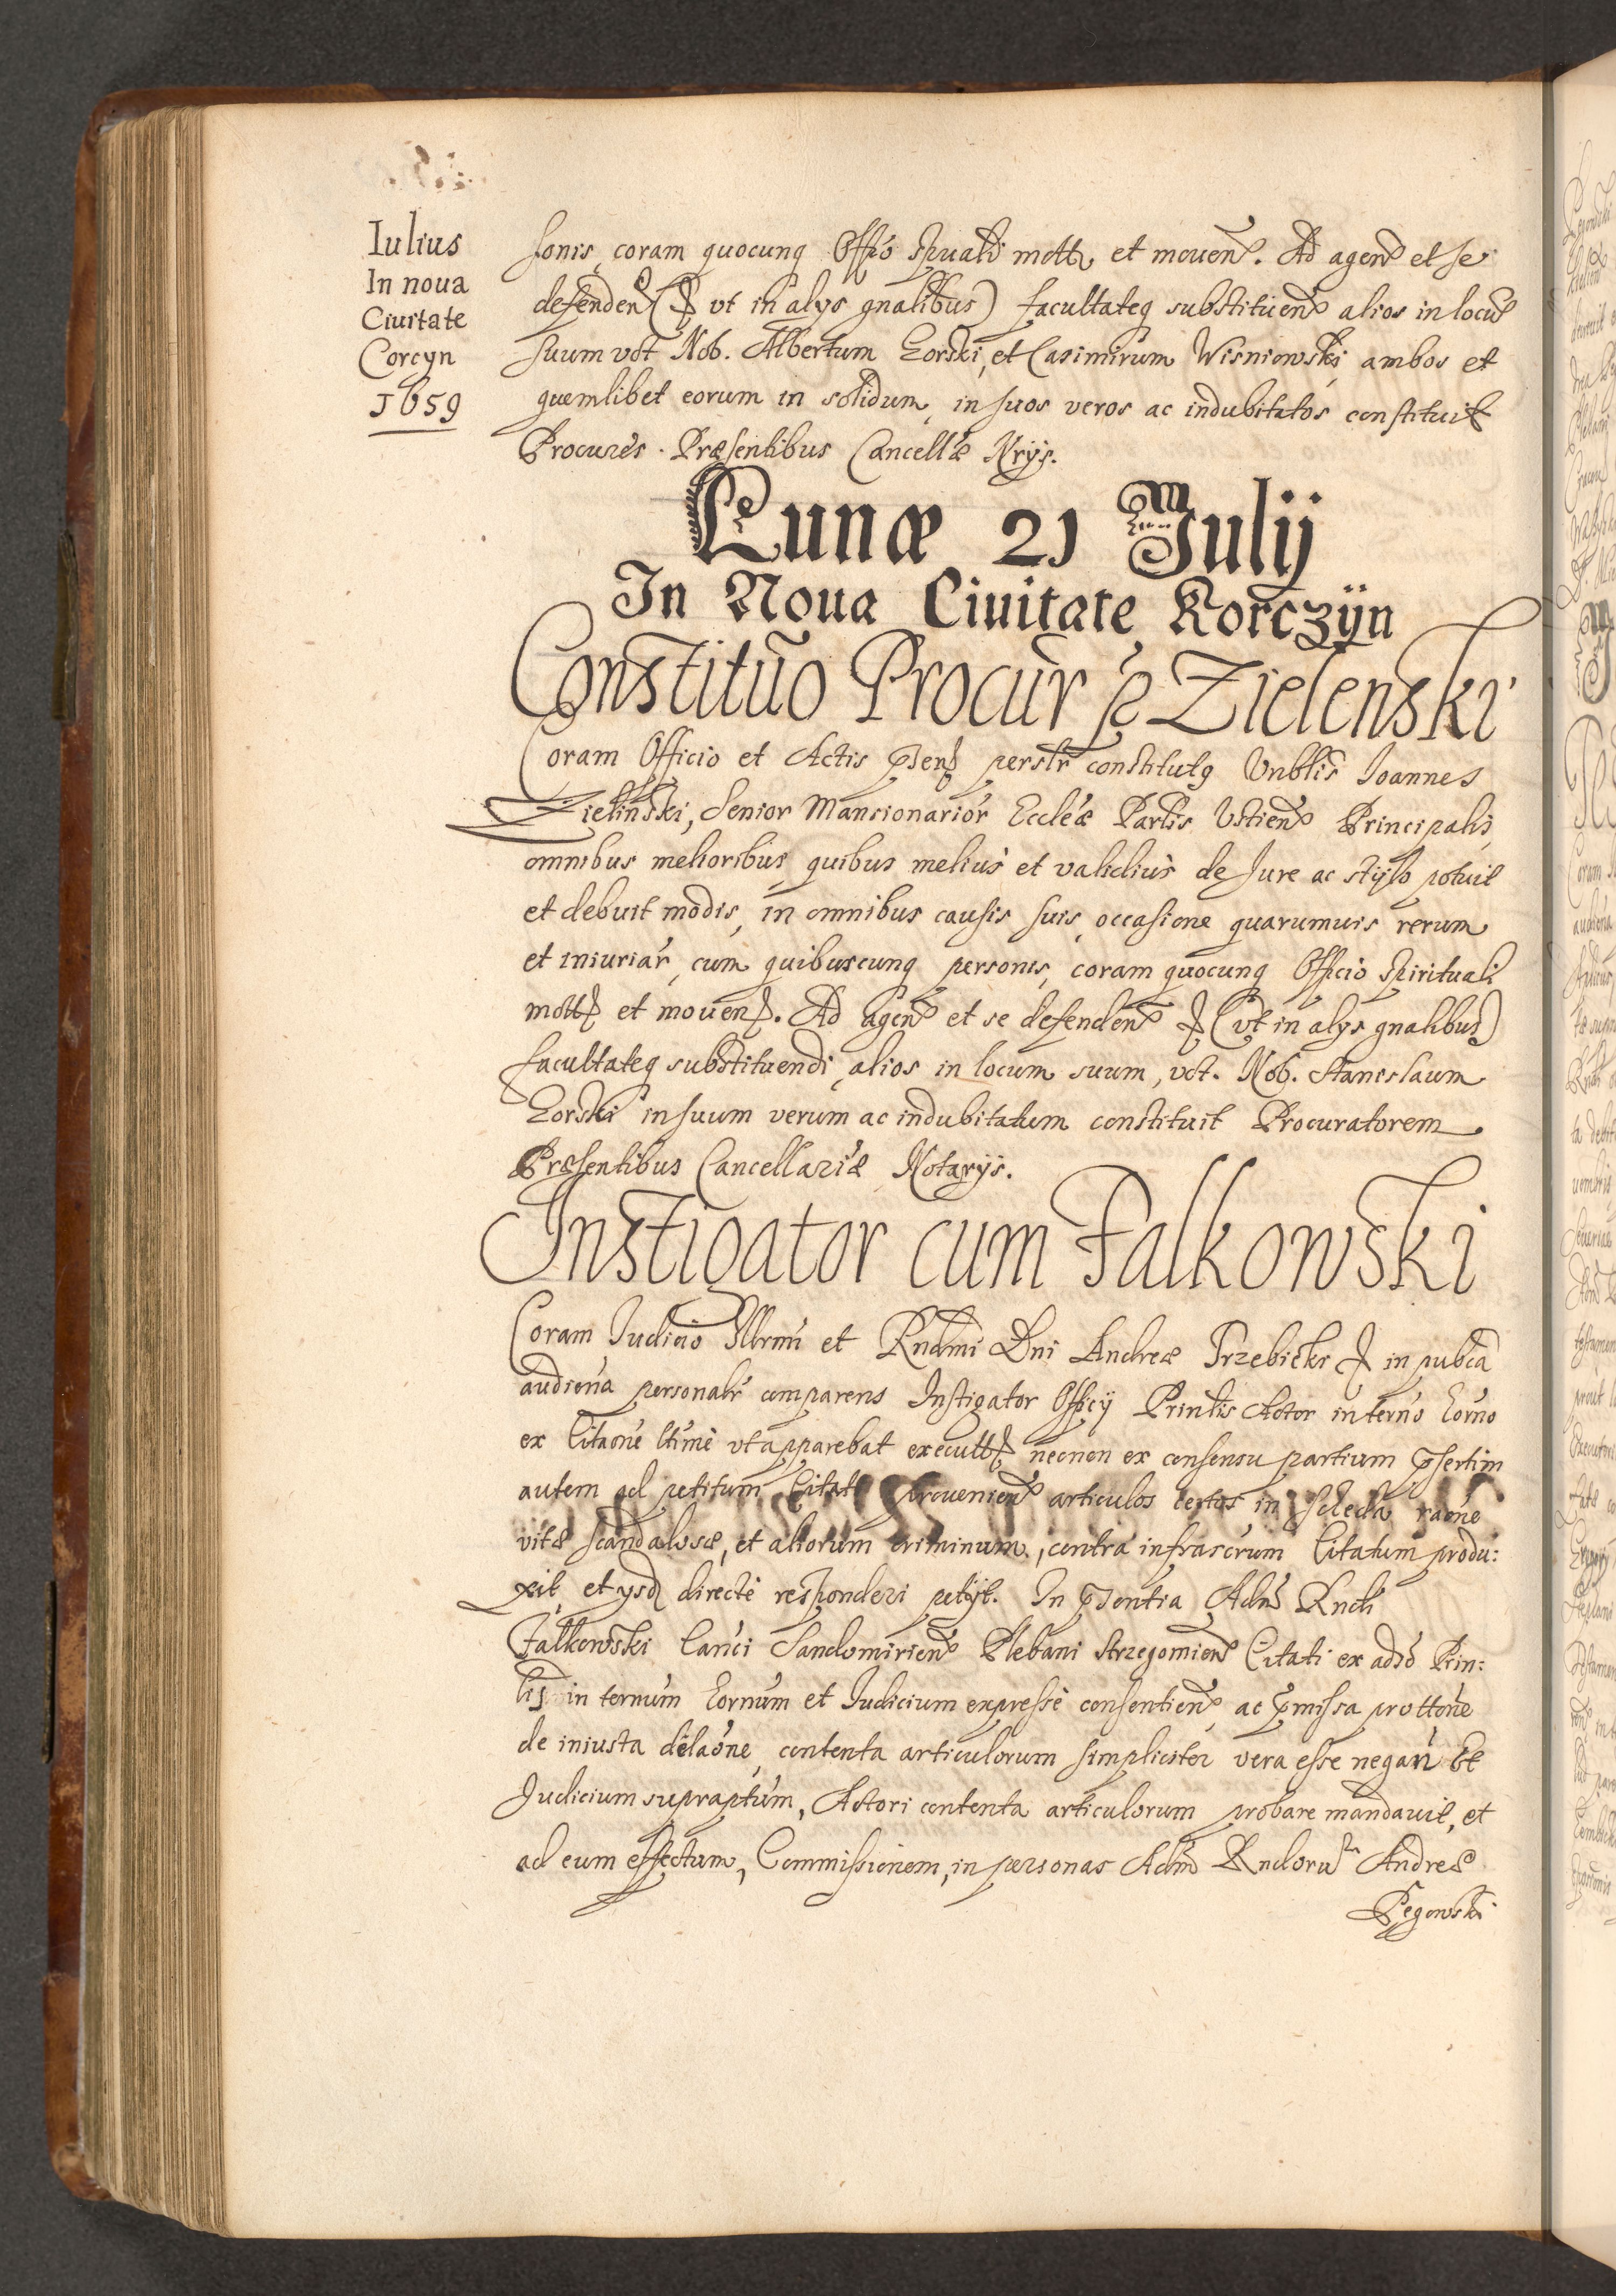 Iulius
In noua
Ciuitate
Corcyn
1659
sonis, coram quocunq Offio Spuali mott et mouen. Ad agen et se
defenden (ꝑ vt in alys gnalibus) facultateq substituen alios in locu
suum vdt Nob. Albertum Zorski, et Casimirum Wisniowski ambos et
quemlibet eorum in solidum, in suos veros ac indubitatos constituit
Procures. Præsentibus Cancellæ Nrijs.
Lunæ 21 Julij
In Noua Ciuitate Korczÿn
Constituo Procur p Zielenski
Coram Officio et Actis pſen perslr constitutq Vnblis Joannes
Zielinski, Senior Mansionarior Eccleæ Parlis Ustien Principalis
omnibus melioribus quibus melius et validius de Jure ac stÿlo potuit
et debuit modis, in omnibus causis suis, occasione quarumuis rerum
et iniuriar, cum quibuscunq personis, coram quocunq Officio Spirituali
mott et mouen. Ad agen et se defenden (vt in alys gnalibus)
facultateq substituendi, alios in locum suum, vdt. Nob. Stanislaum
Zorski in suum verum ac indubitatum constituit Procuratorem
Præsentibus Cancellariæ Notarijs.
Instigator cum Falkowski
Coram Iudicio Illrmi et Rndmi Dni Andreæ Trzebicki in pubca
audiena personalr comparens Instigator Officij Prinlis Actor in terno Eorno
ex Citaone ltime vt apparebat executt necnon ex consensu partium pſertim
autem ad petitum Citati prouenien articulos certos in scheda raone
vitæ scandalosæ, et aliorum criminum, contra infrascrum Citatum produ:
xit, et ysd directe responderi petijt. In pſentia Adm Rndi
Falkowski Canci Sandomirien Plebani Strzegomien Citati ex adso Prin:
lis in ternum Eornum et Iudicium expresse consentien ac pmissa prottone
de iniusta delaone, contenta articulorum simpliciter vera esse negan Et
Judicium supraptum, Actori contenta articulorum probare mandauit, et
ad eum effectum, Commissionem, in personas Adm Rndoru Andreæ
Pegowski